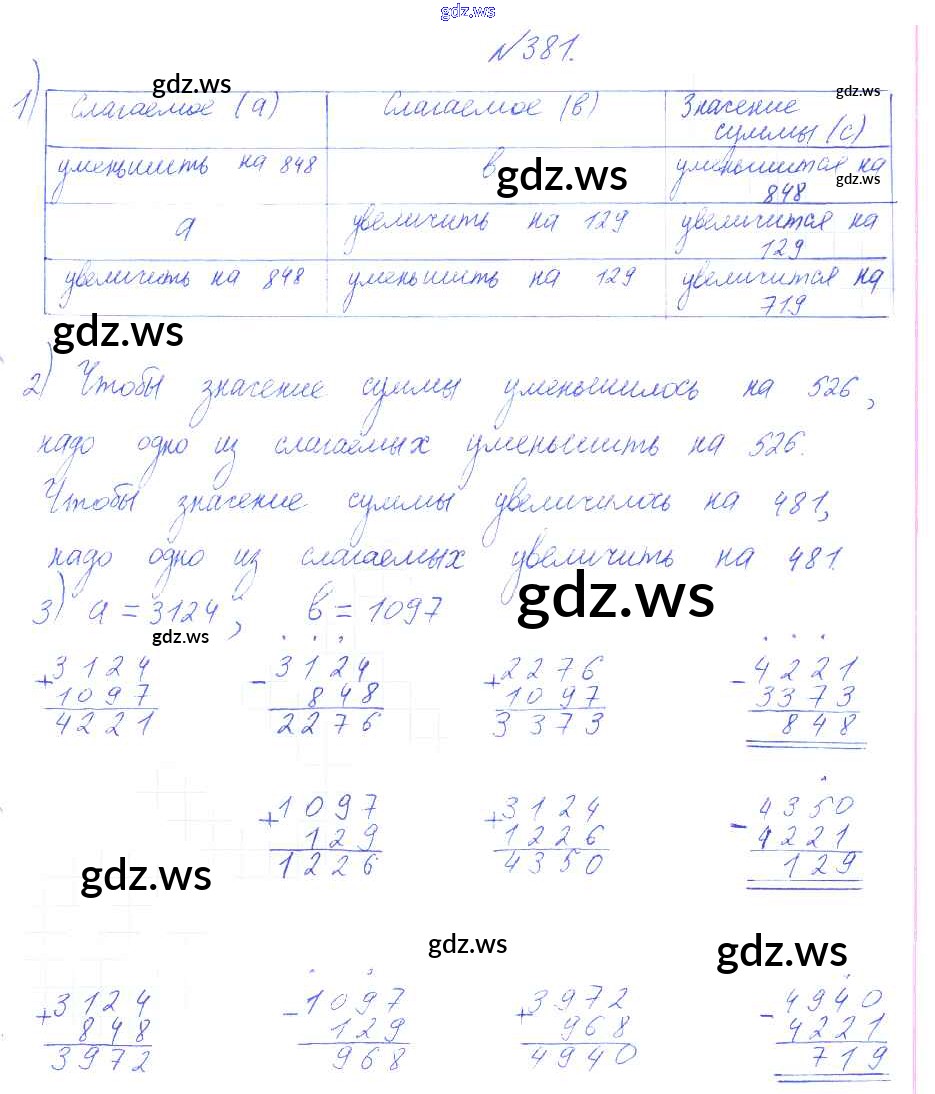 gdz.ws
№381.
1)
gdz.ws
gdz.ws
Слагаемое (а) Слагаемое (в) Значение суммы (с)
уменьшить на 848 в уменьшится на 848
gdz.ws
gdz.ws
а увеличить на 129 увеличится на 129
увеличить на 848 уменьшить на 129 увеличится на 719
gdz.ws
2) Чтобы значение суммы уменьшилось на 526,
надо одно из слагаемых уменьшить на 526.
Чтобы значение суммы увеличилось на 481,
надо одно из слагаемых увеличить на 481.
gdz.ws
3) а = 3124; в = 1097
gdz.ws
+3124 -3124 +2276 -4221
1097 848 1097 3373
4221 2276 3373 848
+1097 +3124 -4350
129 1226 4221
1226 4350 129
gdz.ws
gdz.ws
gdz.ws
+3124 -1097 +3972 -4940
848 129 968 4221
3972 968 4940 719